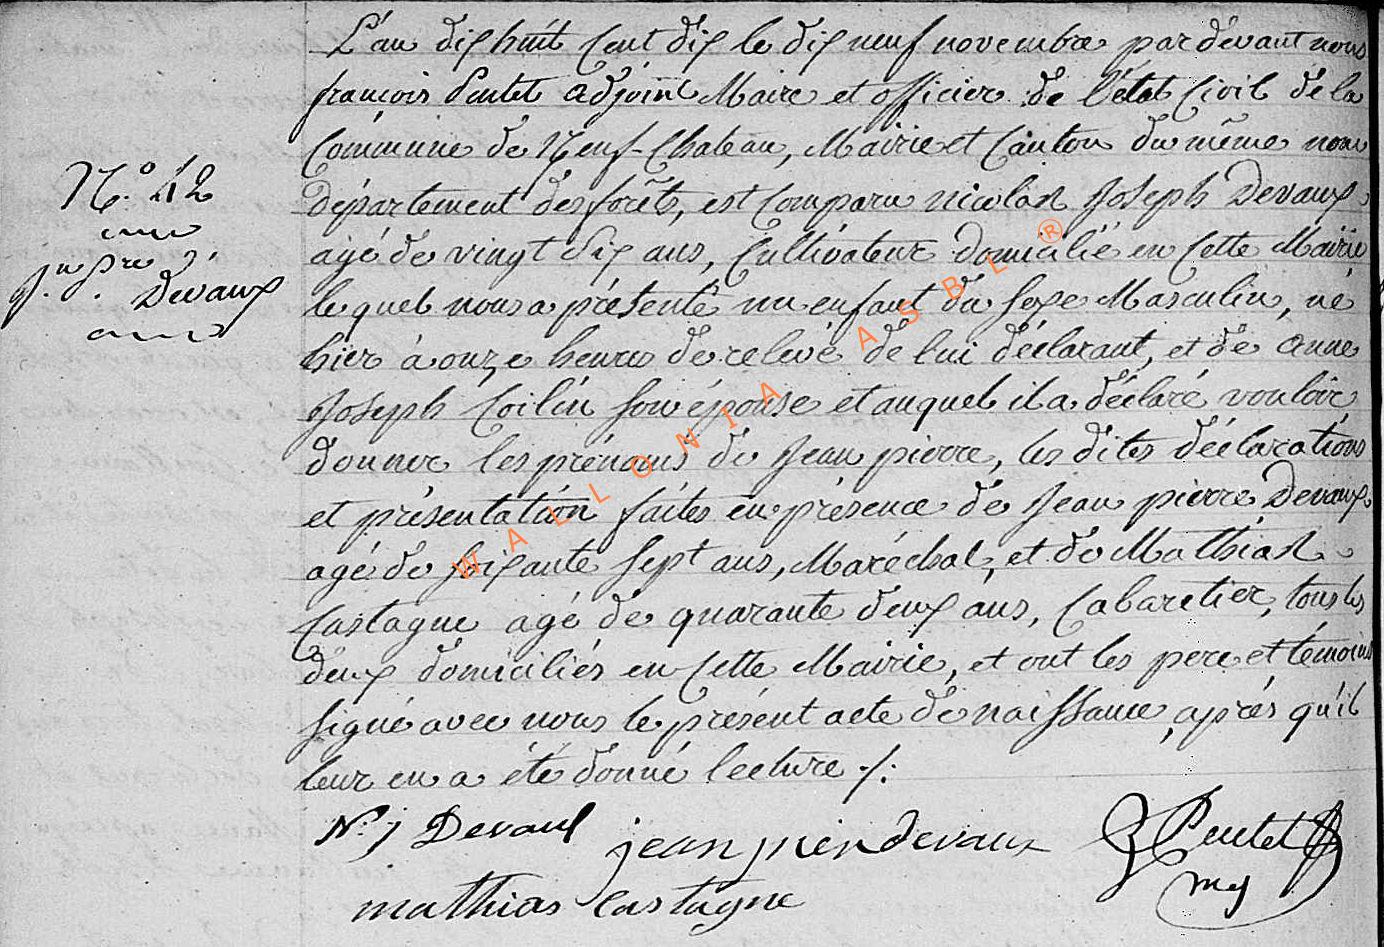 L'an dix huit cent dix le dix neuf novembre par devant nous
françois Pentet adjoint Maire et officier de l'état Civil de la
Commune de Neuf-Chateau, Mairie et Canton du même nom
département des forêts, est comparu nicolas Joseph Devaux
agé de vingt six ans, Cultivateur domicilié en cette Mairie
lequel nous a présenté un enfant du sexe Masculin, né
hier à onze heures de relevé de lui déclarant, et de anne
Joseph Coilin son épouse et auquel il a déclaré vouloir
donner les prénoms de Jean pierre, les dites déclarations
et présentation faites en présence de Jean pierre Devaux
agé de soixante sept ans, Maréchal, et de Mathias
Castagne agé de quarante deux ans, Cabaretier, tous les
deux domiciliés en cette Mairie, et ont les pere et témoins
signé avec nous le présent acte de naissance, après qu'il
leur en a été donné lecture ./.
N.° 42
Devaux
N. j Devaux
jean pier devaux
Pentet
mathias Castagne
WALLONIA ASBL ®